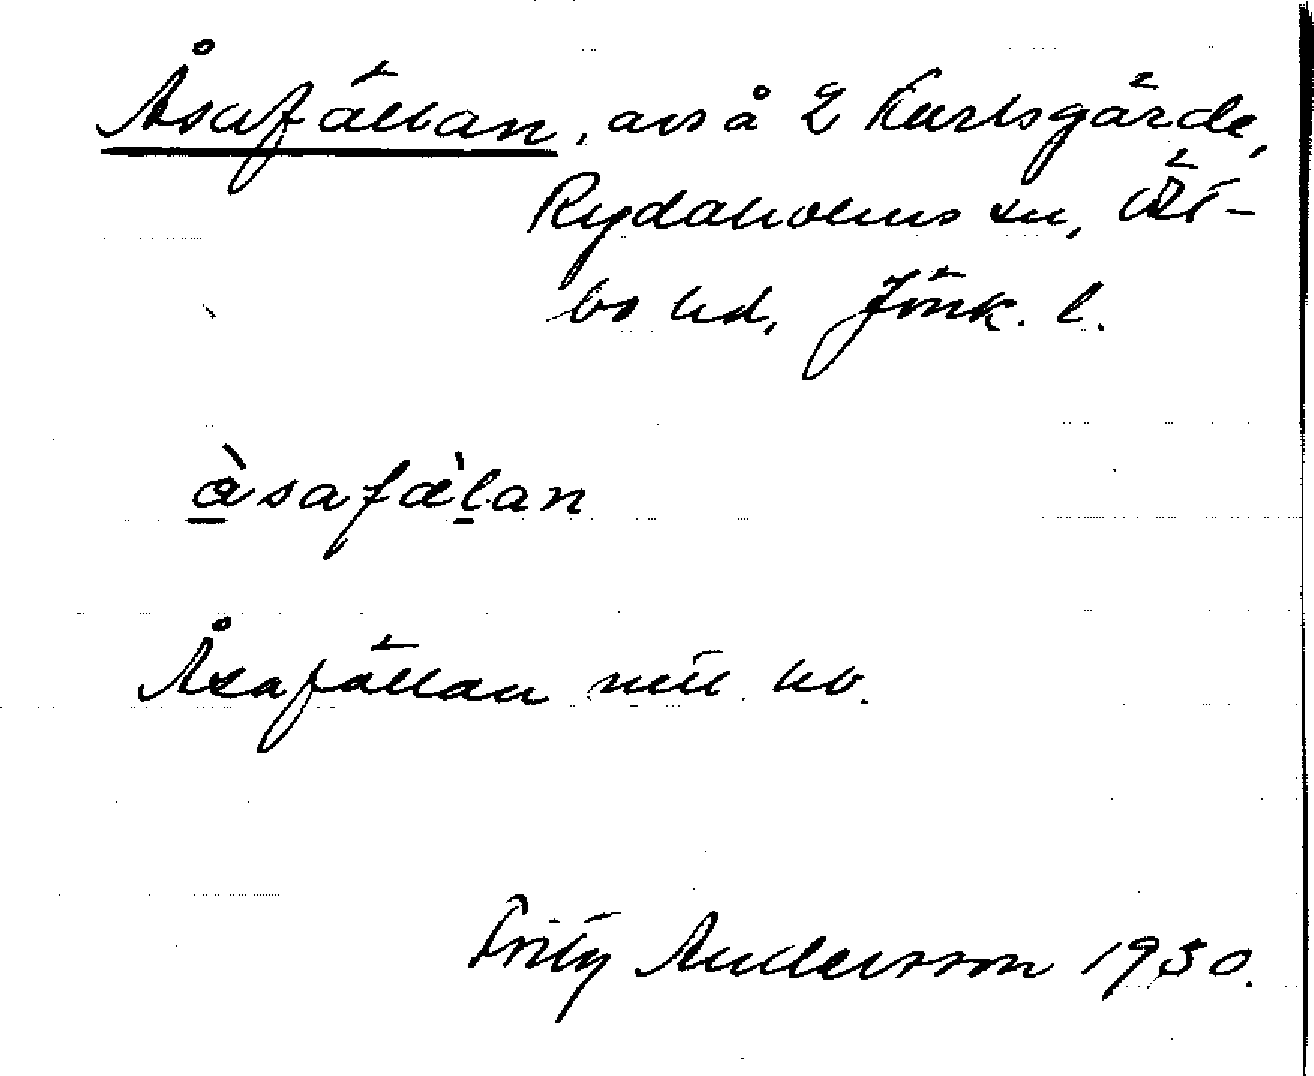 Åsafällan, avs å 2 Karlsgärde,
Rydaholms sn, Öst-
bo hd, Jönk. l.
å̀safæ̀l̠an
Åsafällan mtl hb.
Fritz Andersson 1930.